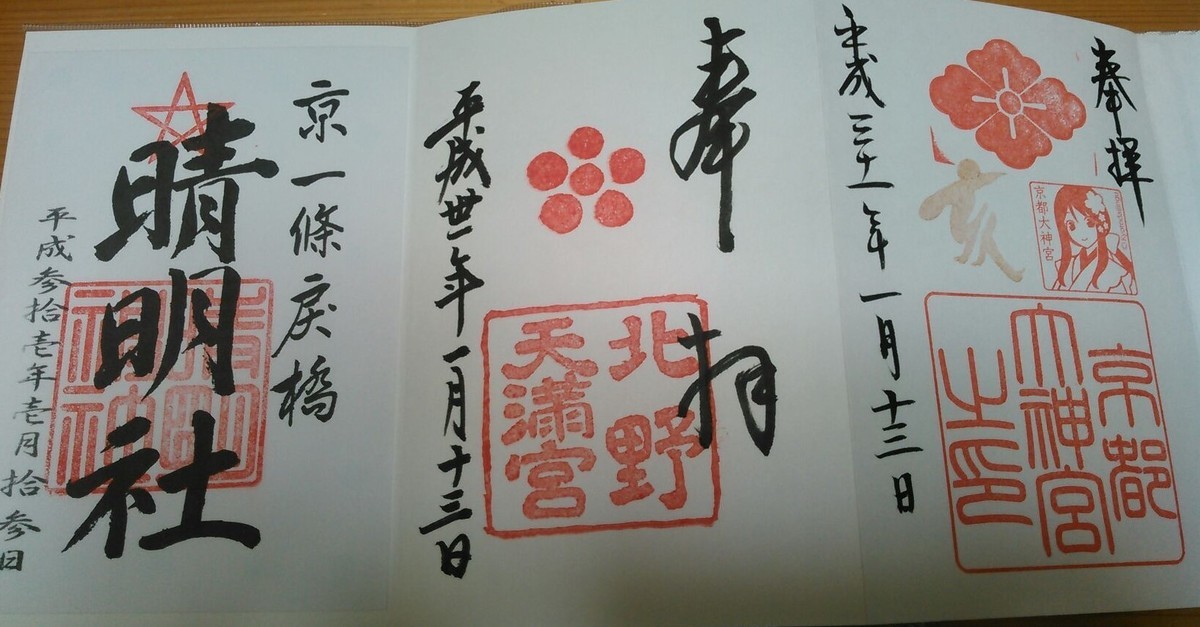 奉拝
京都大神宮
京都
大神宮
之印
平成三十一年一月十三日
奉拝
北野
天満宮
平成卅一年一月十三日
京一條戻橋
晴明社
晴明
神社
平成参拾壱年壱月拾参日